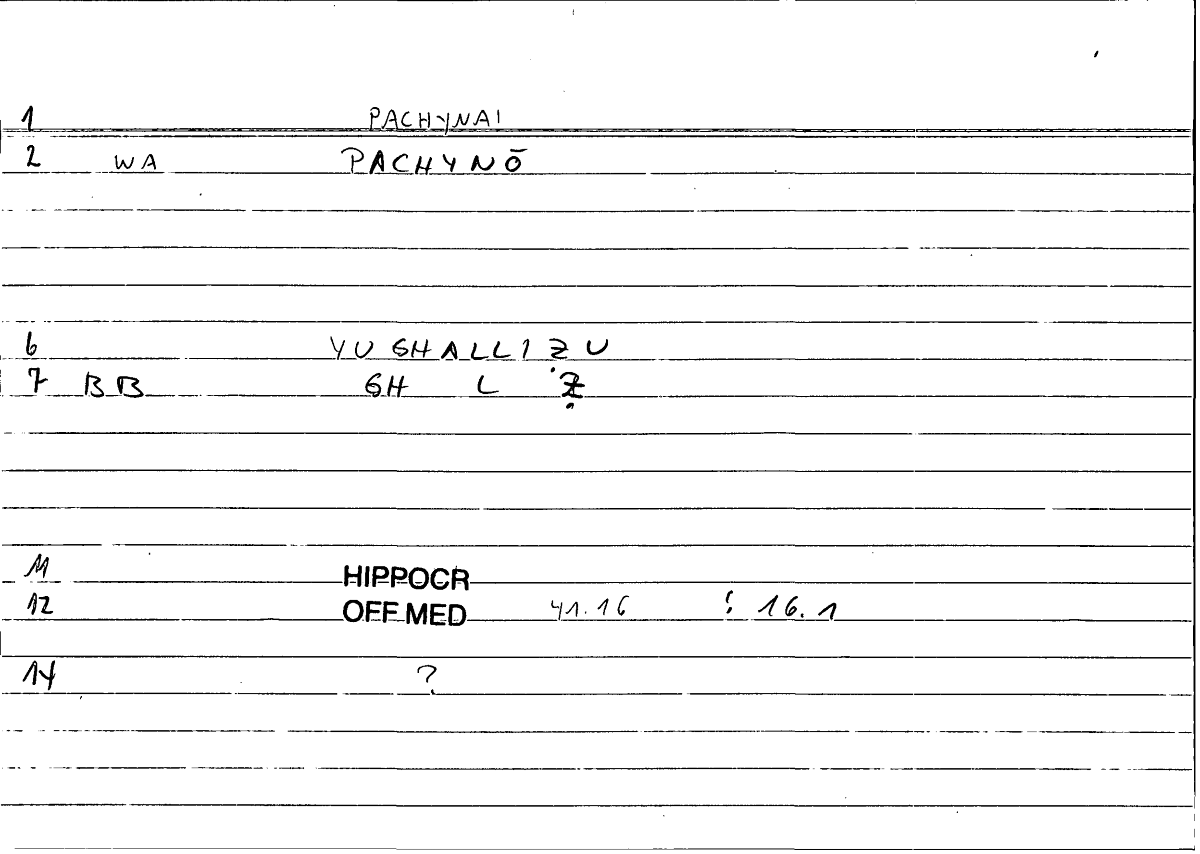 1 PACHYNAI
2 WA PACHYNŌ
6 YUGHALLIẒU
7 BB GH L Ẓ
11 HIPPOCR
12 OFF.MED 41.16 : 16.1
14 ?